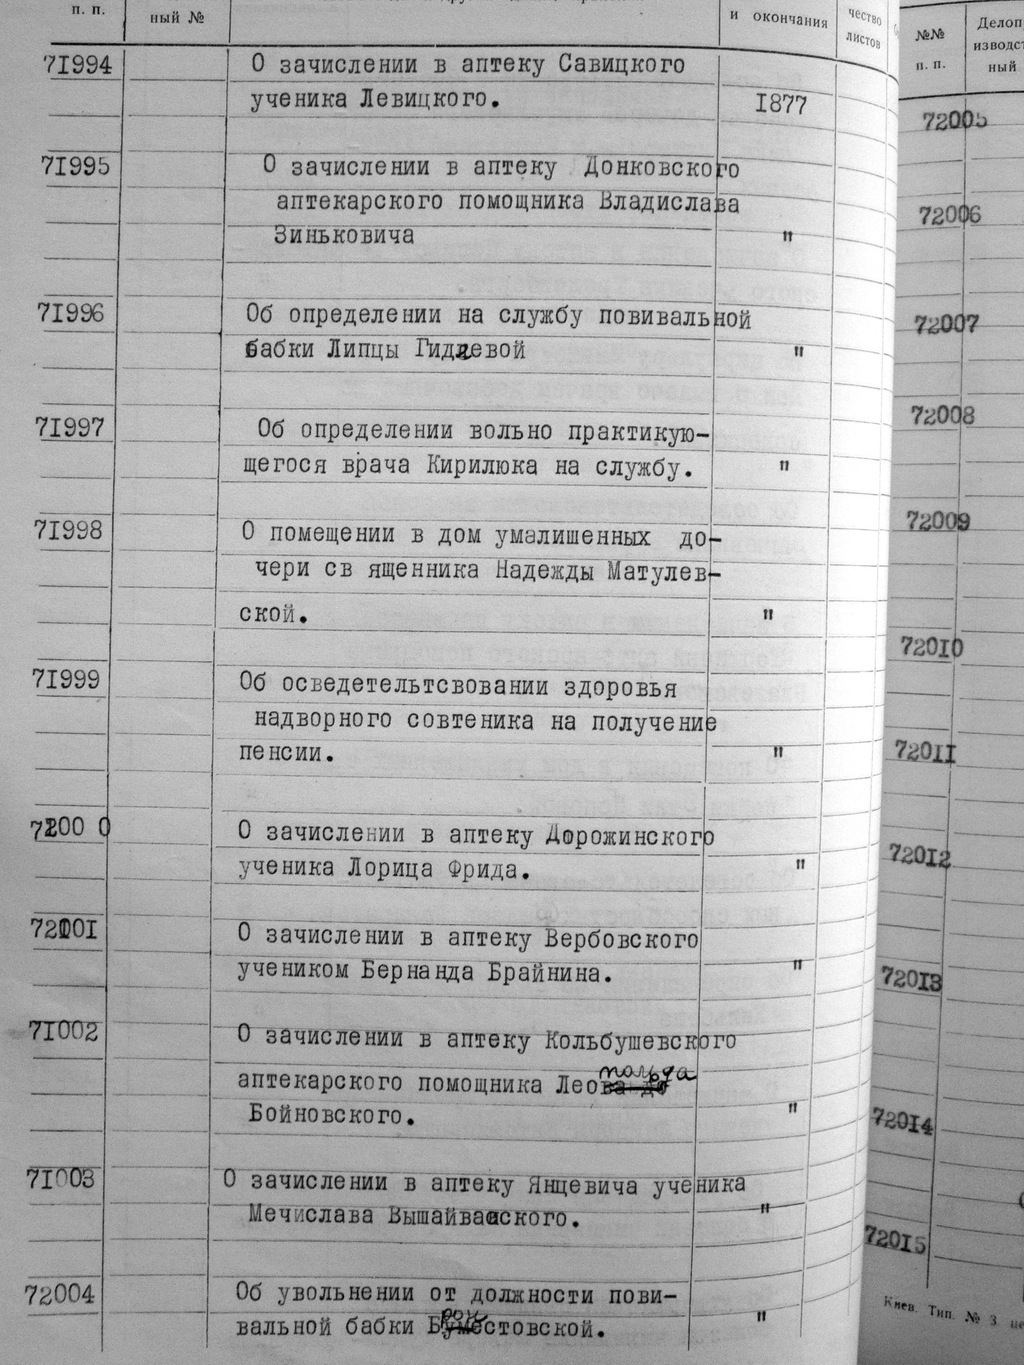 п. п.
ный №
и окончания
чество
листов
№№
п. п.
Делоп
изводст
ный
71994 О зачислении в аптеку Савицкого
ученика Левицкого. 1877
71995 О зачислении в аптеку Донковского
аптекарского помощника Владислава
Зиньковича "
71996 Об определении на службу повивальной
бабки Липцы Гидалевой "
71997 Об определении вольно практикую-
щегося врача Кирилюка на службу. "
71998 О помещении в дом умалишенных до-
чери св ященника Надежды Матулев-
ской. "
71999 Об осведетельтсвовании здоровья
надворного совтеника на получение
пенсии. "
7200 0 О зачислении в аптеку Дорожинского
ученика Лорица Фрида. "
72001 О зачислении в аптеку Вербовского
учеником Бернанда Брайнина. "
71002 О зачислении в аптеку Кольбушевского
аптекарского помощника Леопольда
Бойновского. "
71003 О зачислении в аптеку Янцевича ученика
Мечислава "
72004 Об увольнении от должности пови-
вальной бабки "
72005
72006
72007
72008
72009
72010
72011
72012
72013
72014
72015
Киев. Тип. № 3